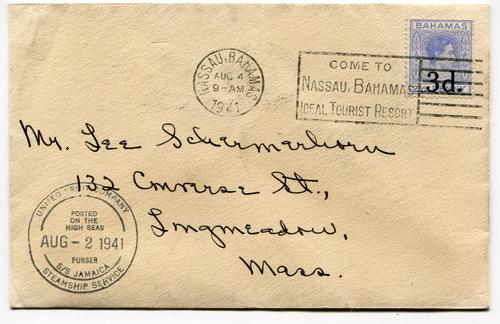 BAHAMAS
3d.
NASSAU, BAHAMAS
AUG 4
9-AM
1941
COME TO
NASSAU, BAHAMAS
IDEAL TOURIST RESORT
Mr. Lee Schermerhorn
132 Converse St.,
Longmeadow,
Mass.
UNITED FRUIT COMPANY
POSTED
ON THE
HIGH SEAS
AUG - 2 1941
PURSER
S/S JAMAICA
STEAMSHIP SERVICE